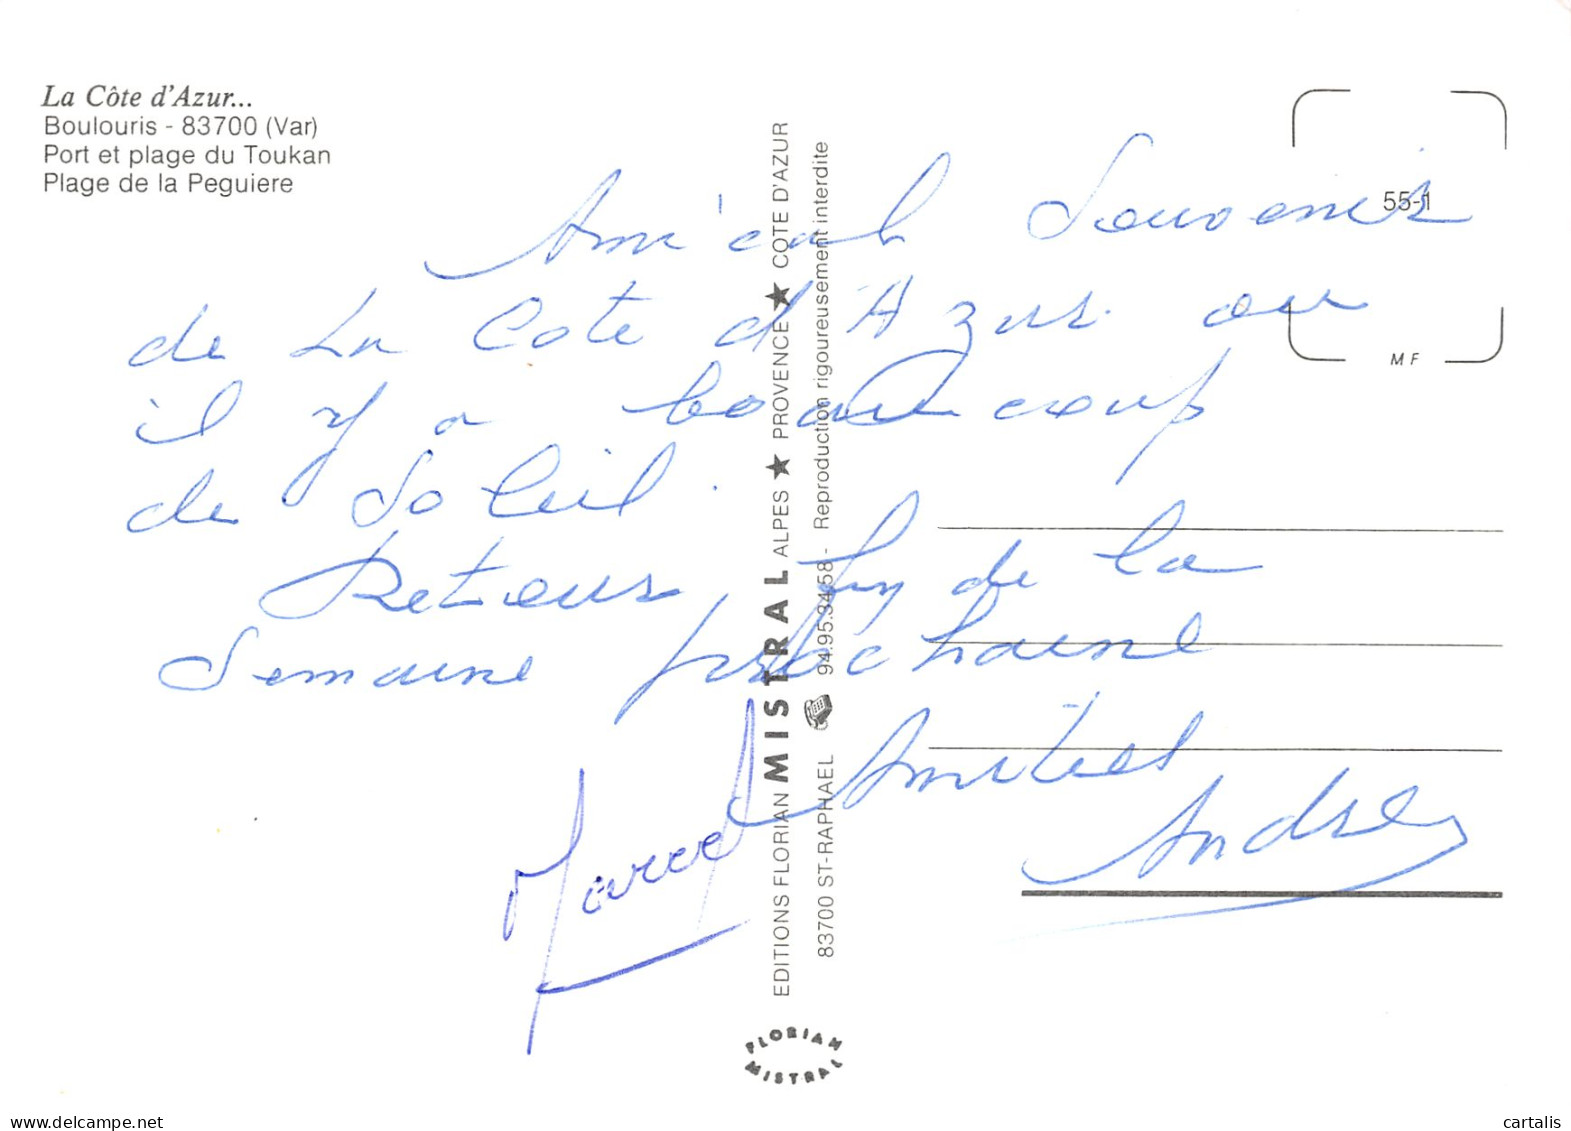 La Côte d'Azur...
Boulouris - 83700 (Var)
Port et plage du Toukan
Plage de la Peguiere
55-1
MF
Amicals Souvenirs
de La Cote d'Azur. ou
il y a beaucoup
de Soleil.
Retour fin de la
Semaine prochaine
Amitiés
Marcel
Andrée
EDITIONS FLORIAN MISTRAL ALPES ★ PROVENCE ★ COTE D'AZUR
83700 ST-RAPHAEL ☎ 94.95.34.58 - Reproduction rigoureusement interdite
FLORIAN
MISTRAL
cartalis
delcampe.net